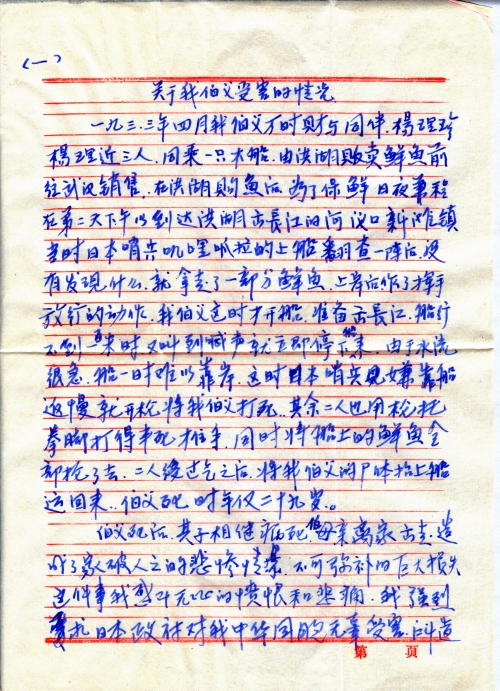 (一)
关于我伯父受害的情况
一九三.三年四月我伯父万时财与同伴.楊理珍
楊理近三人.同乘一只木船.由洪湖贩卖鮮魚前
往武汉销售.在洪湖购魚后为了保鮮日夜兼程
在第二天下午以到达洪湖古長江的河汊口新滩镇
当时日本哨兵叽哩呱拉的上船翻查一陣后.没
有发现什么.就拿走了一部分鮮魚.上岸后作了挥手
放行的动作.我伯父这时才开船.准备去長江.船行
不到 来时又叫到喊声就立即停下船来.由于水流
很急.船一时难以靠岸.这时日本哨兵見嫌靠船
返慢就开枪将我伯父打死.其余二人也用枪托
拳脚打得半死.推手.同时将船上的鮮魚全
部抢了去.二人缓过气之后.将我伯父的尸体抬上船
运回来.伯父死时年仅二十九岁。
伯父死后.其子相继病死.伯母亲萬家出走.造
成了家破人亡的悲惨情景.不可弥补的巨大损失
这件事我感到无比的愤恨和悲痛.我强烈
要求日本政府对我中华同胞无辜受害.所造
第 页